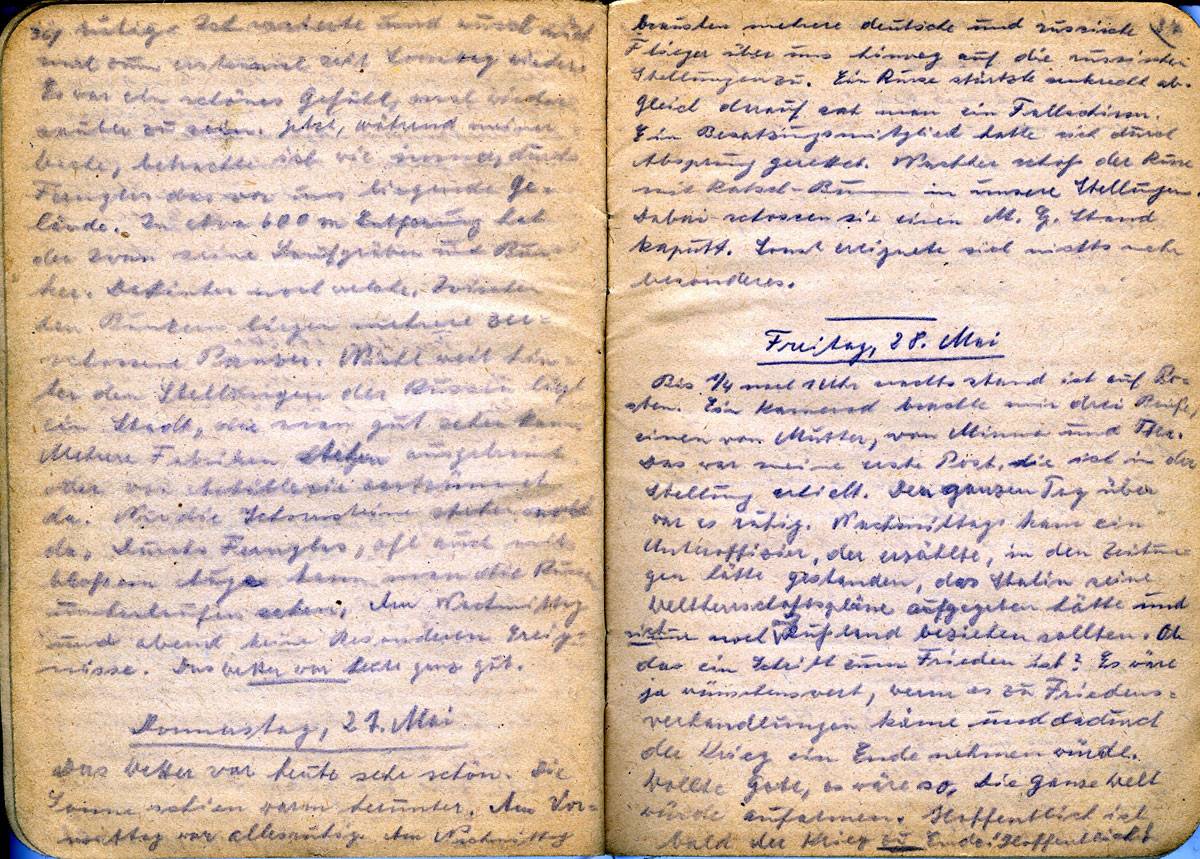 ruhig. Ich rasierte und wusch mich
mal zum erstenmal seit Sonntag wieder.
Es war ein schönes Gefühl, mal wieder
sauber zu sein. Jetzt, während meiner
betrachte ich wie immer, durchs
Fernglas das vor uns liegende Ge-
lände. In etwa 600 m Entfernung hat
der Iwan seine Laufgräben und Bun-
ker. Dahinter noch welche. Zwischen
den Bunkern liegen mehrere zer-
schossene Panzer. Nicht weit hin-
ter den Stellungen des Russen liegt
ein Stadt, die man gut sehen kann
Mehrere Fabriken stehen ausgebrannt
oder von Artillerie zertrümmert
da. Nur die Schornsteine stehen noch
da. Durchs Fernglas, oft auch mit
bloßem Auge kann man die Russen
umherlaufen sehen. Am Nachmittag
und abend keine besonderen Ereig-
nisse. Das Wetter war heute ganz gut.
Donnerstag, 27. Mai
Das Wetter war heute sehr schön. Die
Sonne schien warm herunter. Am Vor-
mittag war alles ruhig. Am Nachmittag
brausten mehrere deutsche und russische
Flieger über uns hinweg auf die russischen
Stellungen zu. Ein Russe stürtzte senkrecht ab.
gleich darauf sah man ein Fallschirm.
Ein Besatzungsmitglied hatte sich durch
Absprung gerettet. Nachher schoß der Russe
mit Ratsch-Bum in unsere Stellungen.
Dabei schossen sie einen M. G. Stand
kaputt. Sonst ereignete sich nichts mehr
besonderes.
Freitag, 28. Mai
Bis 1/4 nach 1 Uhr nachts stand ich auf Po-
sten. Ein Kamerad brachte mir drei Briefe,
einen von Mutter, von Minna und
Das war meine erste Post, die ich in der
Stellung erhielt. Den ganzen Tag über
war es ruhig. Nachmittags kam ein
Unteroffizier, der erzählte, in den Zeitun-
gen hätte gestanden, das Stalin seine
Weltherrschaftspläne aufgegeben hätte und
sich nur noch auf Rußland beziehen sollten. Ob
das ein Schritt zum Frieden ist? Es wäre
ja wünschenswert, wenn es zu Friedens-
verhandlungen käme und dadurch
der Krieg ein Ende nehmen würde.
Wollte Gott, es wäre so, die ganze Welt
würde aufatmen. Hoffentlich ist
bald der Krieg zu Ende! Hoffentlich!